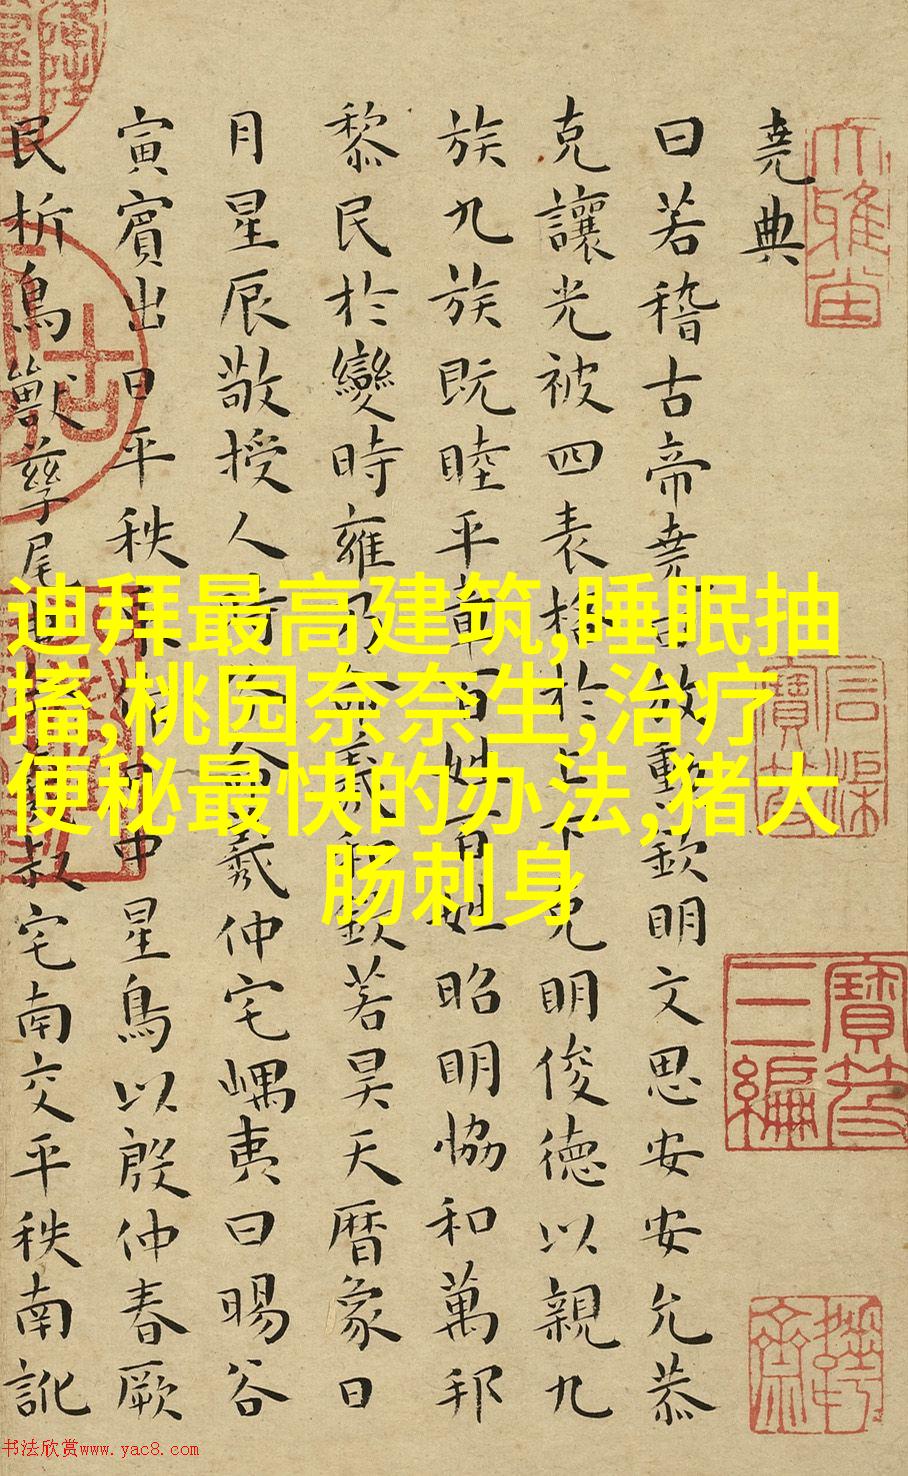 堯典
曰若稽古帝堯曰放動欽明文思安安允恭
克讓光被四表格於上下克明俊德以親九
族九族既睦平章百姓百姓昭明協和萬邦
黎民於變時雍乃命羲和欽若昊天曆象日
月星辰敬授人時分命羲仲宅嵎夷曰暘谷
寅賓出日平秩東作日中星鳥以殷仲春厥
民析鳥獸孳尾申命羲叔宅南交平秩南訛
迪拜最高建筑,睡眠抽
搐,桃园奈奈生,治疗
便秘最快的办法,猪大
肠刺身
寶笈
三編
书法欣赏www.yac8.com